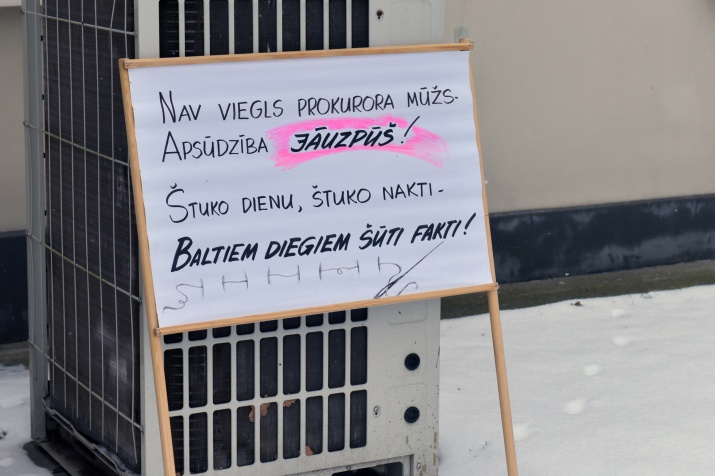 NAV VIEGLS PROKURORA MŪŽS-
APSŪDZĪBA JĀUZPŪŠ!
ŠTUKO DIENU, ŠTUKO NAKTI-
BALTIEM DIEGIEM ŠŪTI FAKTI!